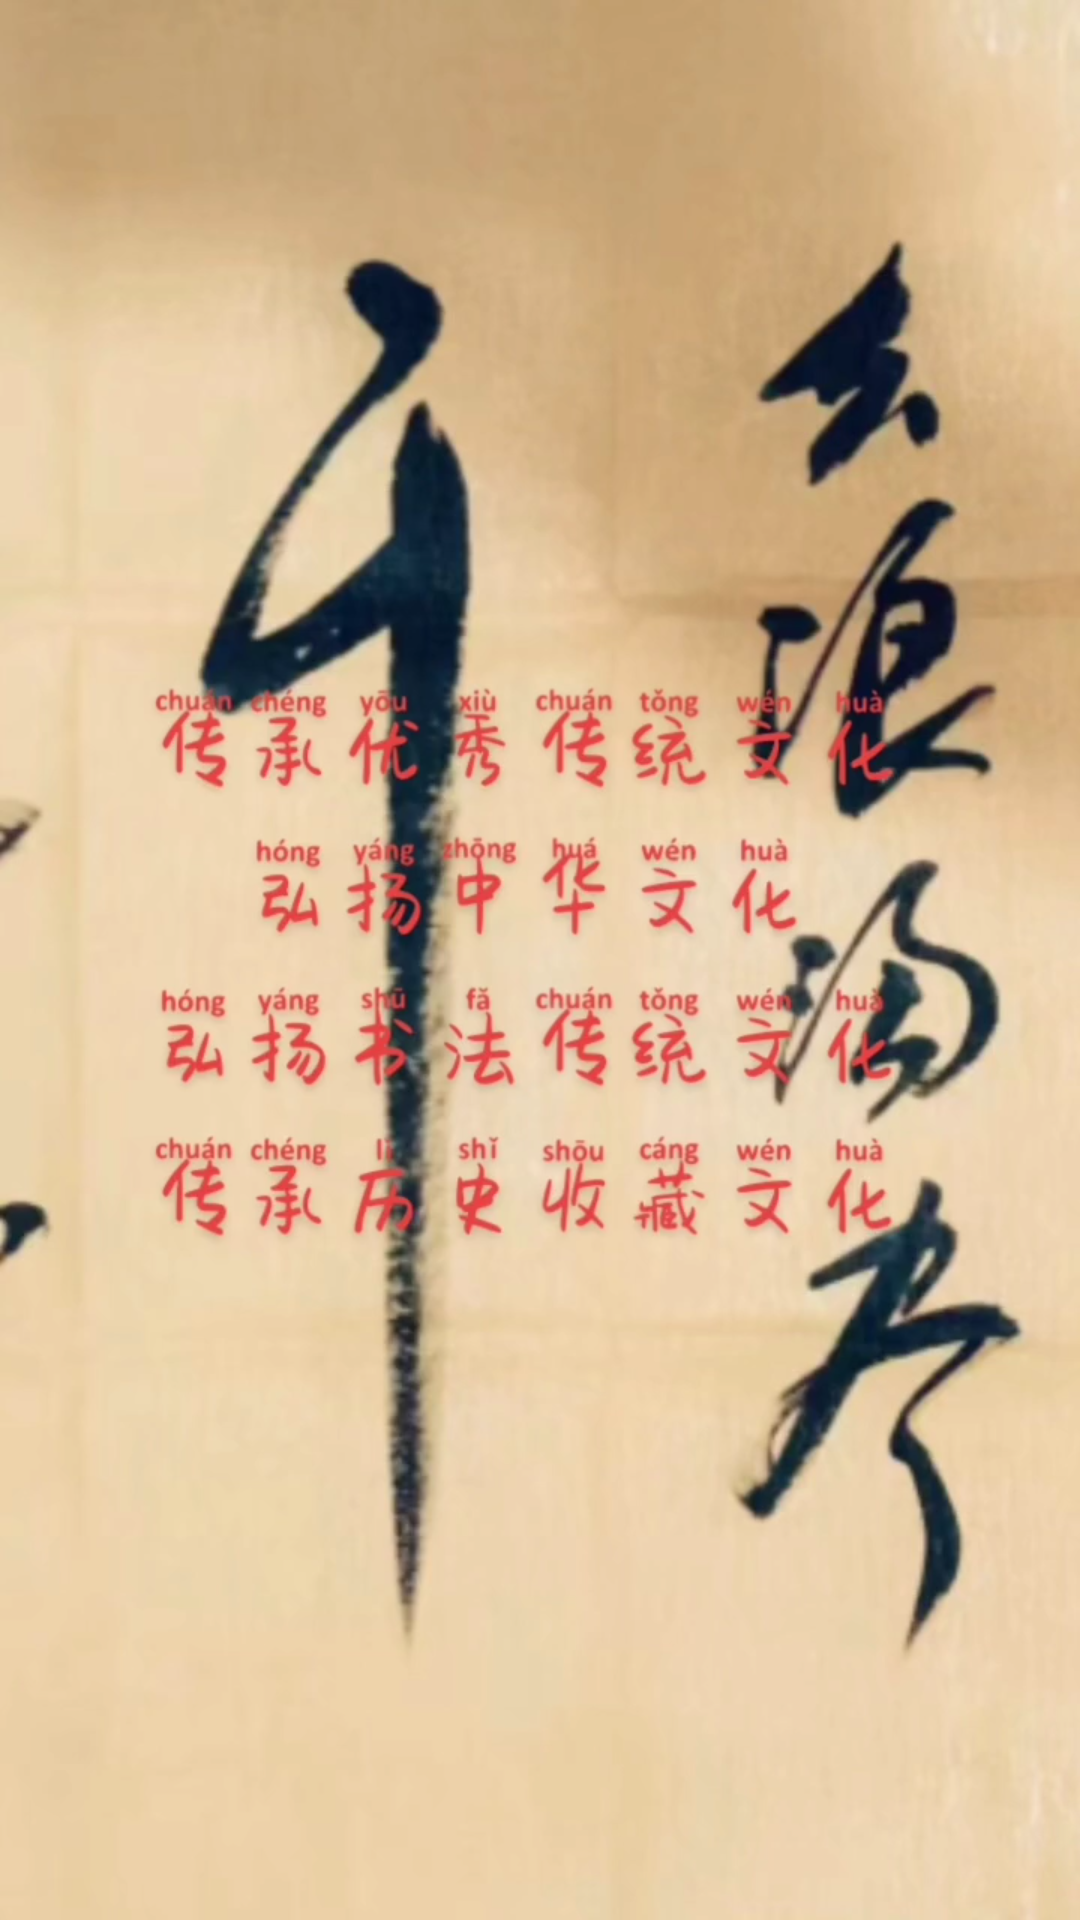 chuán chéng yōu xiù chuán tǒng wén huà
传承优秀传统文化
hóng yáng zhōng huá wén huà
弘扬中华文化
hóng yáng shū fǎ chuán tǒng wén huà
弘扬书法传统文化
chuán chéng lì shǐ shōu cáng wén huà
传承历史收藏文化
去浪淘尽
千